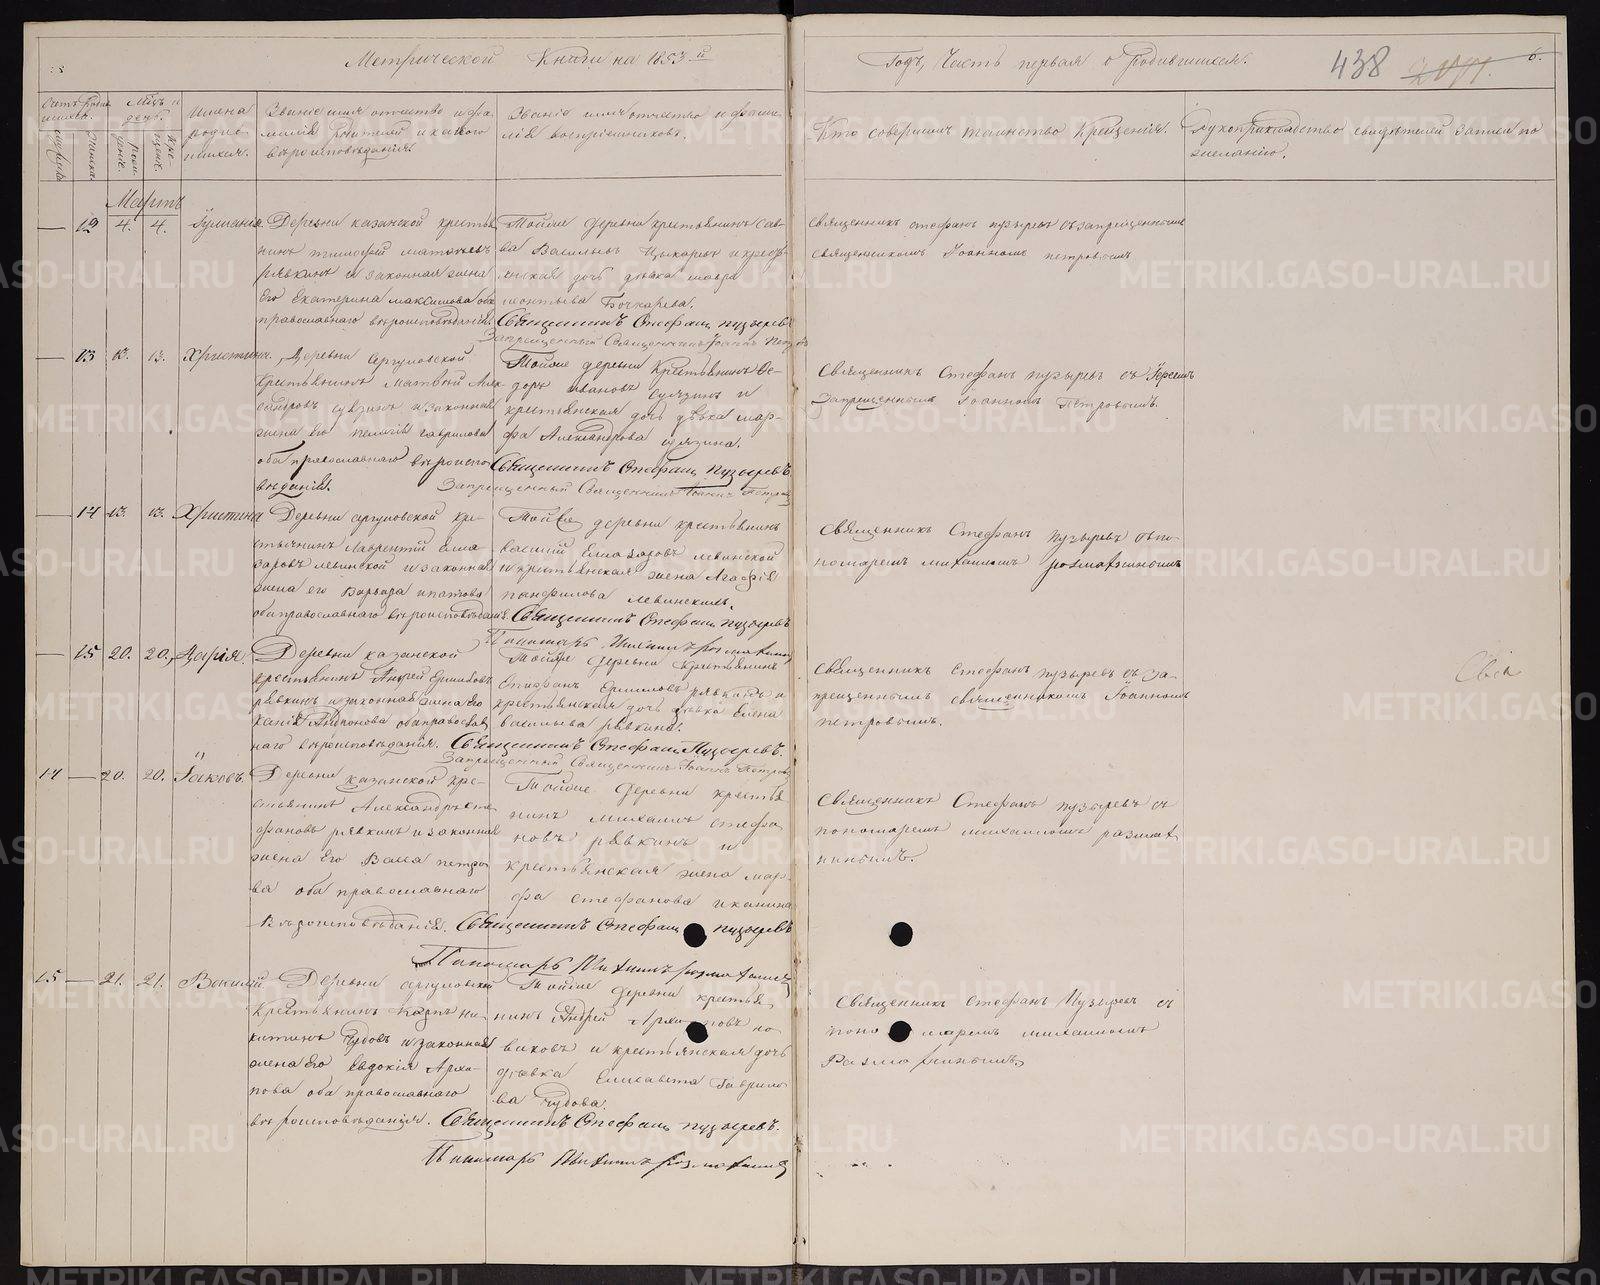 Метрической Книги на 1853 й
Годъ, Часть первая о Родившихся.
438
6.
Счетъ родившихся.
мужеска
женска.
Мѣсяцъ и день.
рожденіе.
крещеніе.
Имена родившихся.
Званіе имя отчество и фамилія Родителей и какого вѣроисповѣданія.
Званіе имя отчество и фамилія воспріемниковъ.
Кто совершилъ таинство Крещенія.
Рукоприкладство свидѣтелей записи по желанію.
Мартъ
— 12 4. 4. Іуліанія.
Деревни казанской крестья-
нинъ тимофей матвѣевъ
рявкинъ и законная жена
Его Екатерина максимова оба
православнаго вѣроисповѣданія.
Тойже деревни крестьянинъ Сав-
ва Васильевъ Цыкаревъ и кресть-
янская дочь дѣвка мавра
леонтьева Бочкарева.
Священникъ Стефанъ пузыревъ
Запрещенный Священникъ Іоаннъ Петровъ
священникъ стефанъ пузыревъ съ запрещеннымъ
священникомъ Іоанномъ петровымъ
— 13 13. 13. Христина.
Деревни Аргуновской
Крестьянинъ Матвѣй Алек-
сандровъ сунзинъ и законная
жена Его пелагія гаврилова
оба православнаго вѣроиспо-
вѣданія.
Тойже деревни Крестьянинъ Ѳе-
доръ ивановъ Сунзинъ и
крестьянская дочь дѣвка мар-
фа Александрова сунзина.
Священникъ Стефанъ пузыревъ
Запрещенный Священникъ Іоаннъ Петровъ
Священникъ Стефанъ пузыревъ съ Іереемъ
Запрещеннымъ Іоанномъ Петровымъ.
— 14 13. 13. Христина
Деревни аргуновской кре-
стьянинъ Лаврентій Елиа-
заровъ левинской и законная
жена его Варвара ипатова
оба православнаго вѣроисповѣданія.
Тойже деревни крестьянинъ
василий Елиазаровъ левинской
и крестьянская жена Агафія
панфилова левинскихъ.
Священникъ Стефанъ пузыревъ
Пономарь Михаилъ
Священникъ Стефанъ пузыревъ съ по-
номаремъ михаиломъ
— 15 20. 20. Дарія.
Деревни казанской
крестьянинъ Андрей Ермиловъ
рявкинъ и законная жена его
Андронова оба православ-
наго вѣроисповѣданія.
Тойже деревни крестьянинъ
Епифанъ Ермиловъ рявкинъ и
крестьянская дочь дѣвка Елена
васильева рявкина.
Священникъ Стефанъ Пузыревъ.
Запрещенный Священникъ Іоаннъ Петровъ
Священникъ стефанъ пузыревъ съ за-
прещеннымъ священникомъ Іоанномъ
петровымъ.
14 — 20. 20. Іаковъ.
Деревни казанской кре-
стьянинъ Александръ сте-
фановъ рявкинъ и законная
жена Его Васса петро-
ва оба православнаго
Вѣроисповѣданія.
Тойже деревни крестья-
нинъ михаилъ стефа-
новъ рявкинъ и
крестьянская жена мар-
фа стефанова иканина
Священникъ Стефанъ пузыревъ
Пономарь Михаилъ
Священникъ Стефанъ пузыревъ съ
пономаремъ михаиломъ
15 — 21. 21. Василій
Деревни аргуновской
Крестьянинъ Карпъ ни-
китинъ Чудовъ и законная
жена его Евдокія Архи-
пова оба православнаго
вѣроисповѣданія.
Тойже деревни крестья-
нинъ Андрей
и крестьянская дочь
дѣвка Елисавета Гаврило-
ва Чудова.
Священникъ Стефанъ пузыревъ.
Пономарь Михаилъ
Священникъ Стефанъ Пузыревъ съ
пономаремъ михаиломъ
METRIKI.GASO-URAL.RU